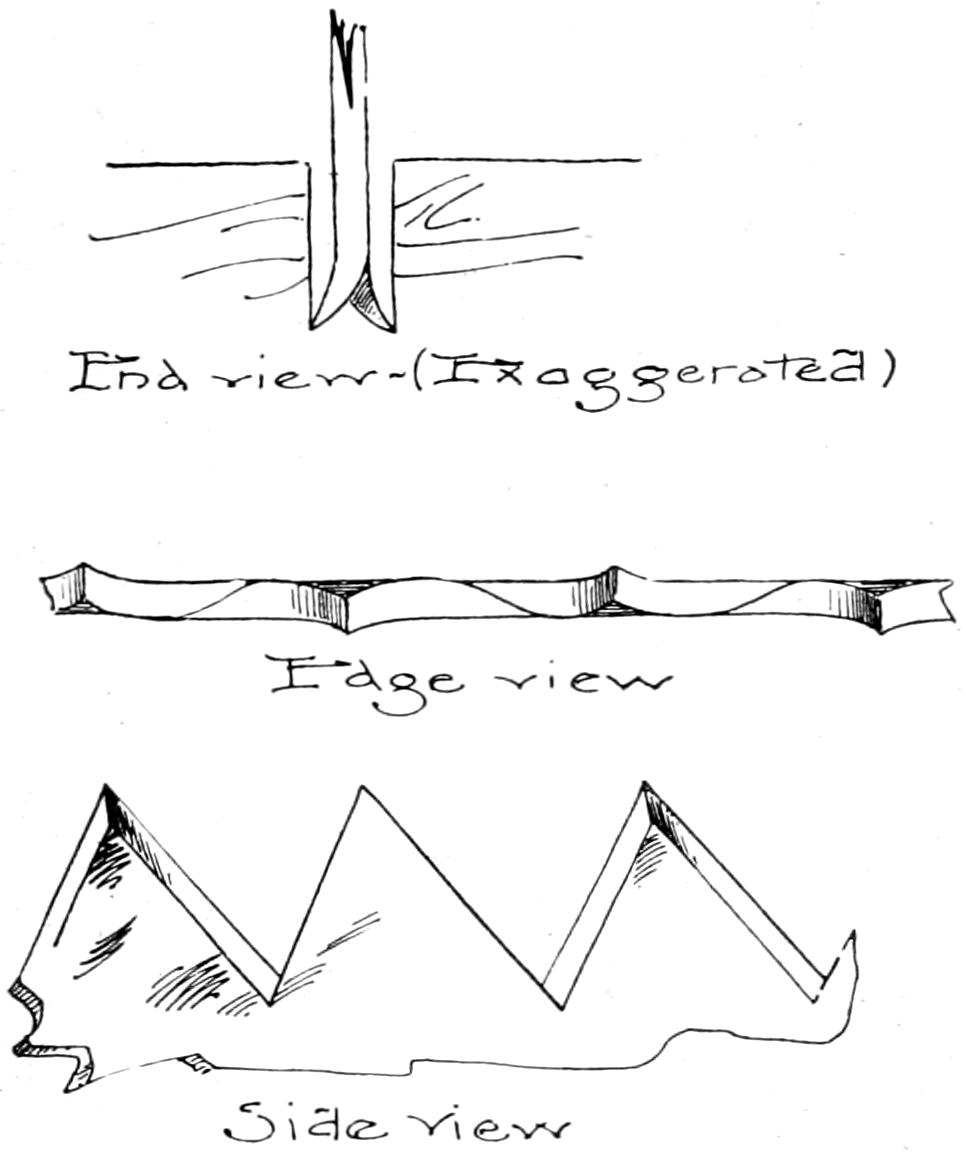 End view-(Exaggerated)
Edge view
Side view